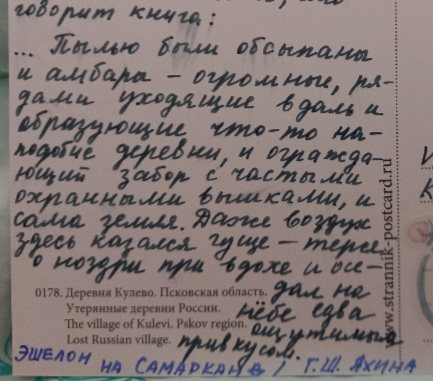 говорит книга:
... Пылью были обсыпаны
и амбары – огромные, ря-
дами уходящие вдаль и
образующие что-то на-
подобие деревни, и огражда-
ющий забор с частыми
охранными вышками, и
сама земля. Даже воздух
здесь казался гуще – терся
о ноздри при вдохе и осе-
дал на
нёбе едва
ощутимым
привкусом.
0178. Деревня Кулево. Псковская область.
Утерянные деревни России.
The village of Kulevi. Pskov region.
Lost Russian village.
ЭШЕЛОН НА САМАРКАНД / Г.Ш. ЯХИНА
www.strannik-postcard.ru